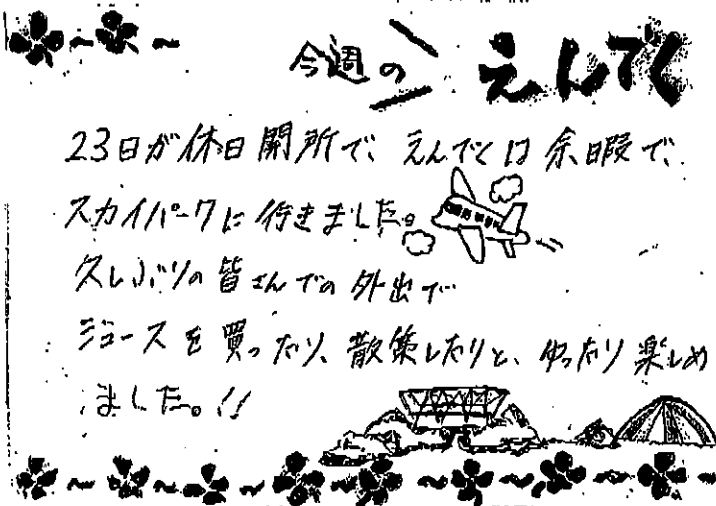 今週の えんでく
23日が休日開所で、えんでくは余暇で、
スカイパークに行きました。
久しぶりの皆さんでの外出で
ジュースを買ったり、散策したりと、ゆったり楽しめ
ました。!!